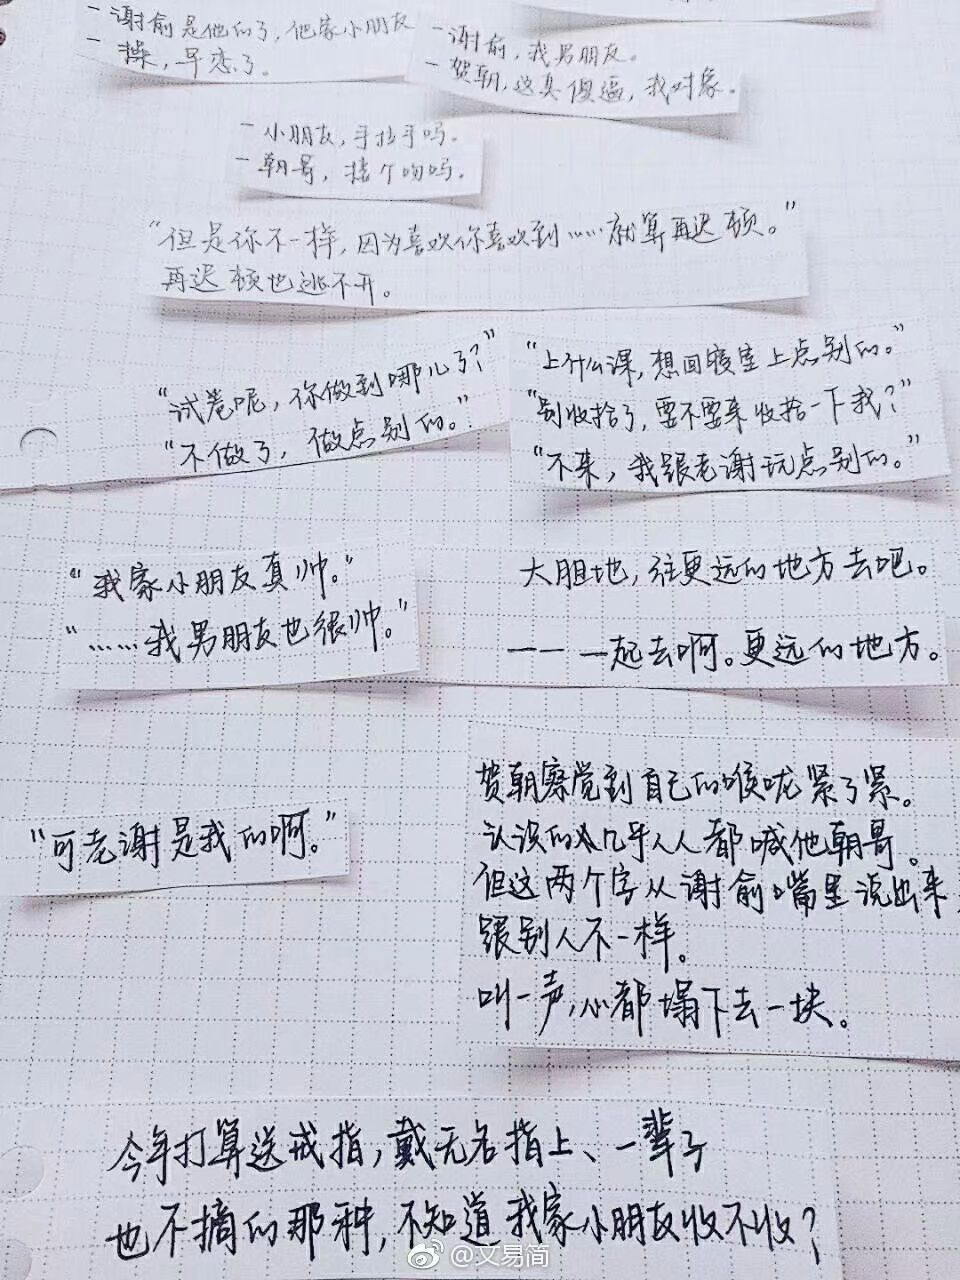 - 谢俞是他的了，他家小朋友
- 操，早恋了。
- 谢俞，我男朋友。
- 贺朝，这真傻逼，我对象。
- 小朋友，手拉手吗。
- 朝哥，接个吻吗。
“但是你不一样，因为喜欢你喜欢到……就算再迟顿。”
再迟顿也逃不开。
“试卷呢，你做到哪儿了？”
“不做了，做点别的。”
“上什么课，想回寝室上点别的。”
“别收拾了，要不要来收拾一下我？”
“不来，我跟老谢玩点别的。”
“我家小朋友真帅。”
“……我男朋友也很帅。”
大胆地，往更远的地方去吧。
—— 一起去啊。更远的地方。
“可老谢是我的啊。”
贺朝察觉到自己的喉咙紧了紧。
认识的人几乎人人都喊他朝哥。
但这两个字从谢俞嘴里说出来，
跟别人不一样。
叫一声，心都塌下去一块。
今年打算送戒指，戴无名指上、一辈子
也不摘的那种，不知道我家小朋友收不收？
@文易简